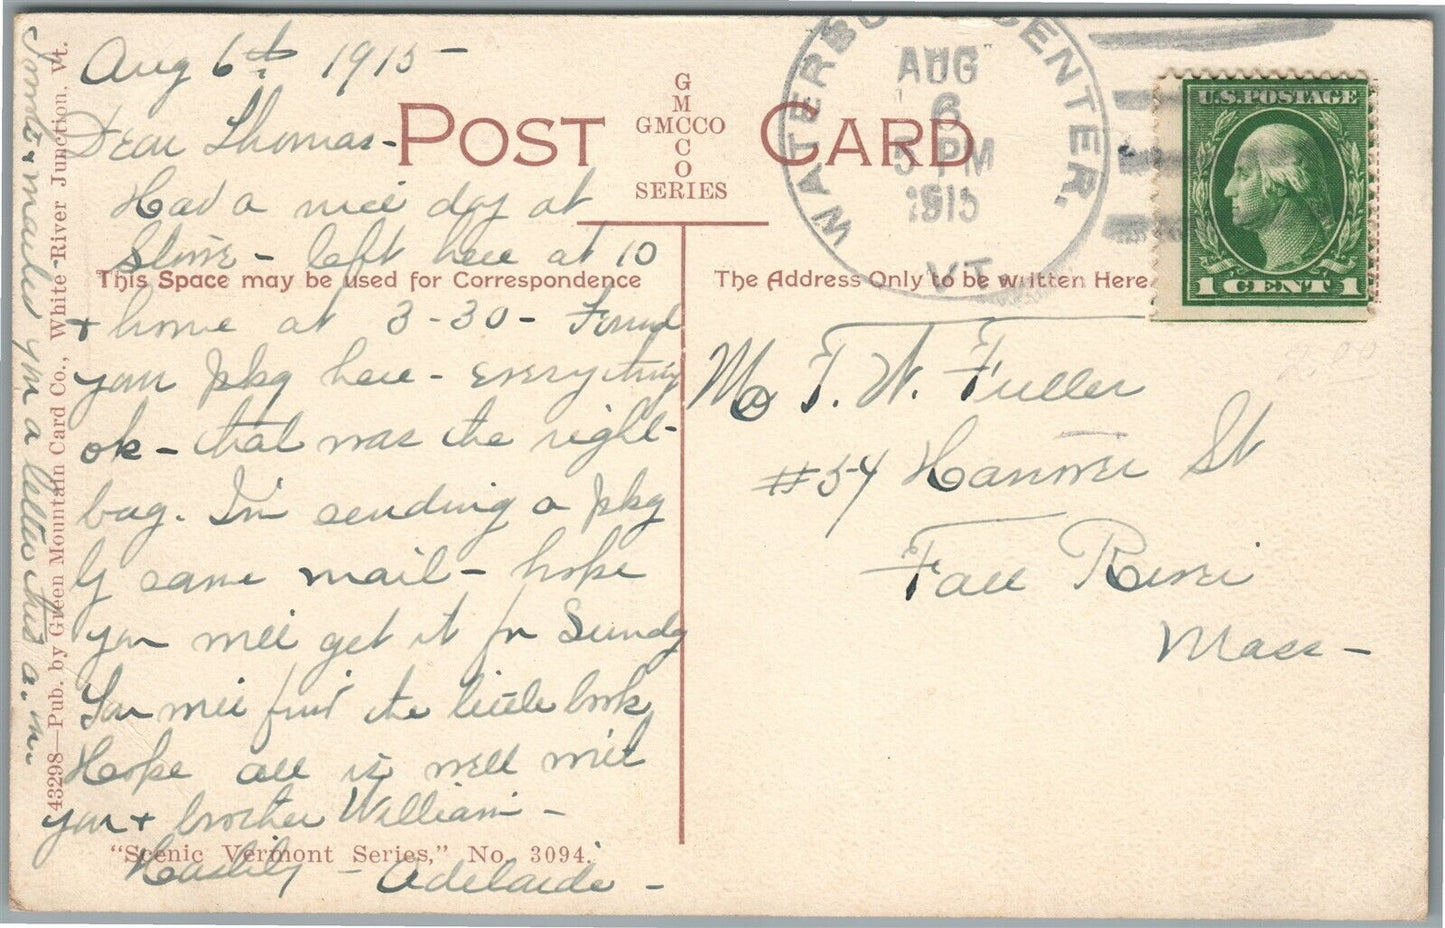 Aug 6th 1915 -
Dear Thomas -
Had a nice day at
Stowe - left here at 10
+ home at 3-30 - Found
your pkg here - everything
ok - that was the right
bag. I'm sending a pkg
by same mail - hope
you will get it for Sundy
You will find the little book
Hope all is well with
you + brother William -
Hastily - Adelaide -
+ mailed you a letter this a.m.
POST CARD
G
M
GMCCO
C
O
SERIES
This Space may be used for Correspondence
The Address Only to be written Here
43298—Pub. by Green Mountain Card Co., White River Junction, Vt.
"Scenic Vermont Series," No. 3094.
WATERBURY CENTER.
AUG
6
5 PM
1915
VT.
U.S. POSTAGE
1 CENT 1
Mr T. W. Fuller
#54 Hanover St
Fall River
Mass -